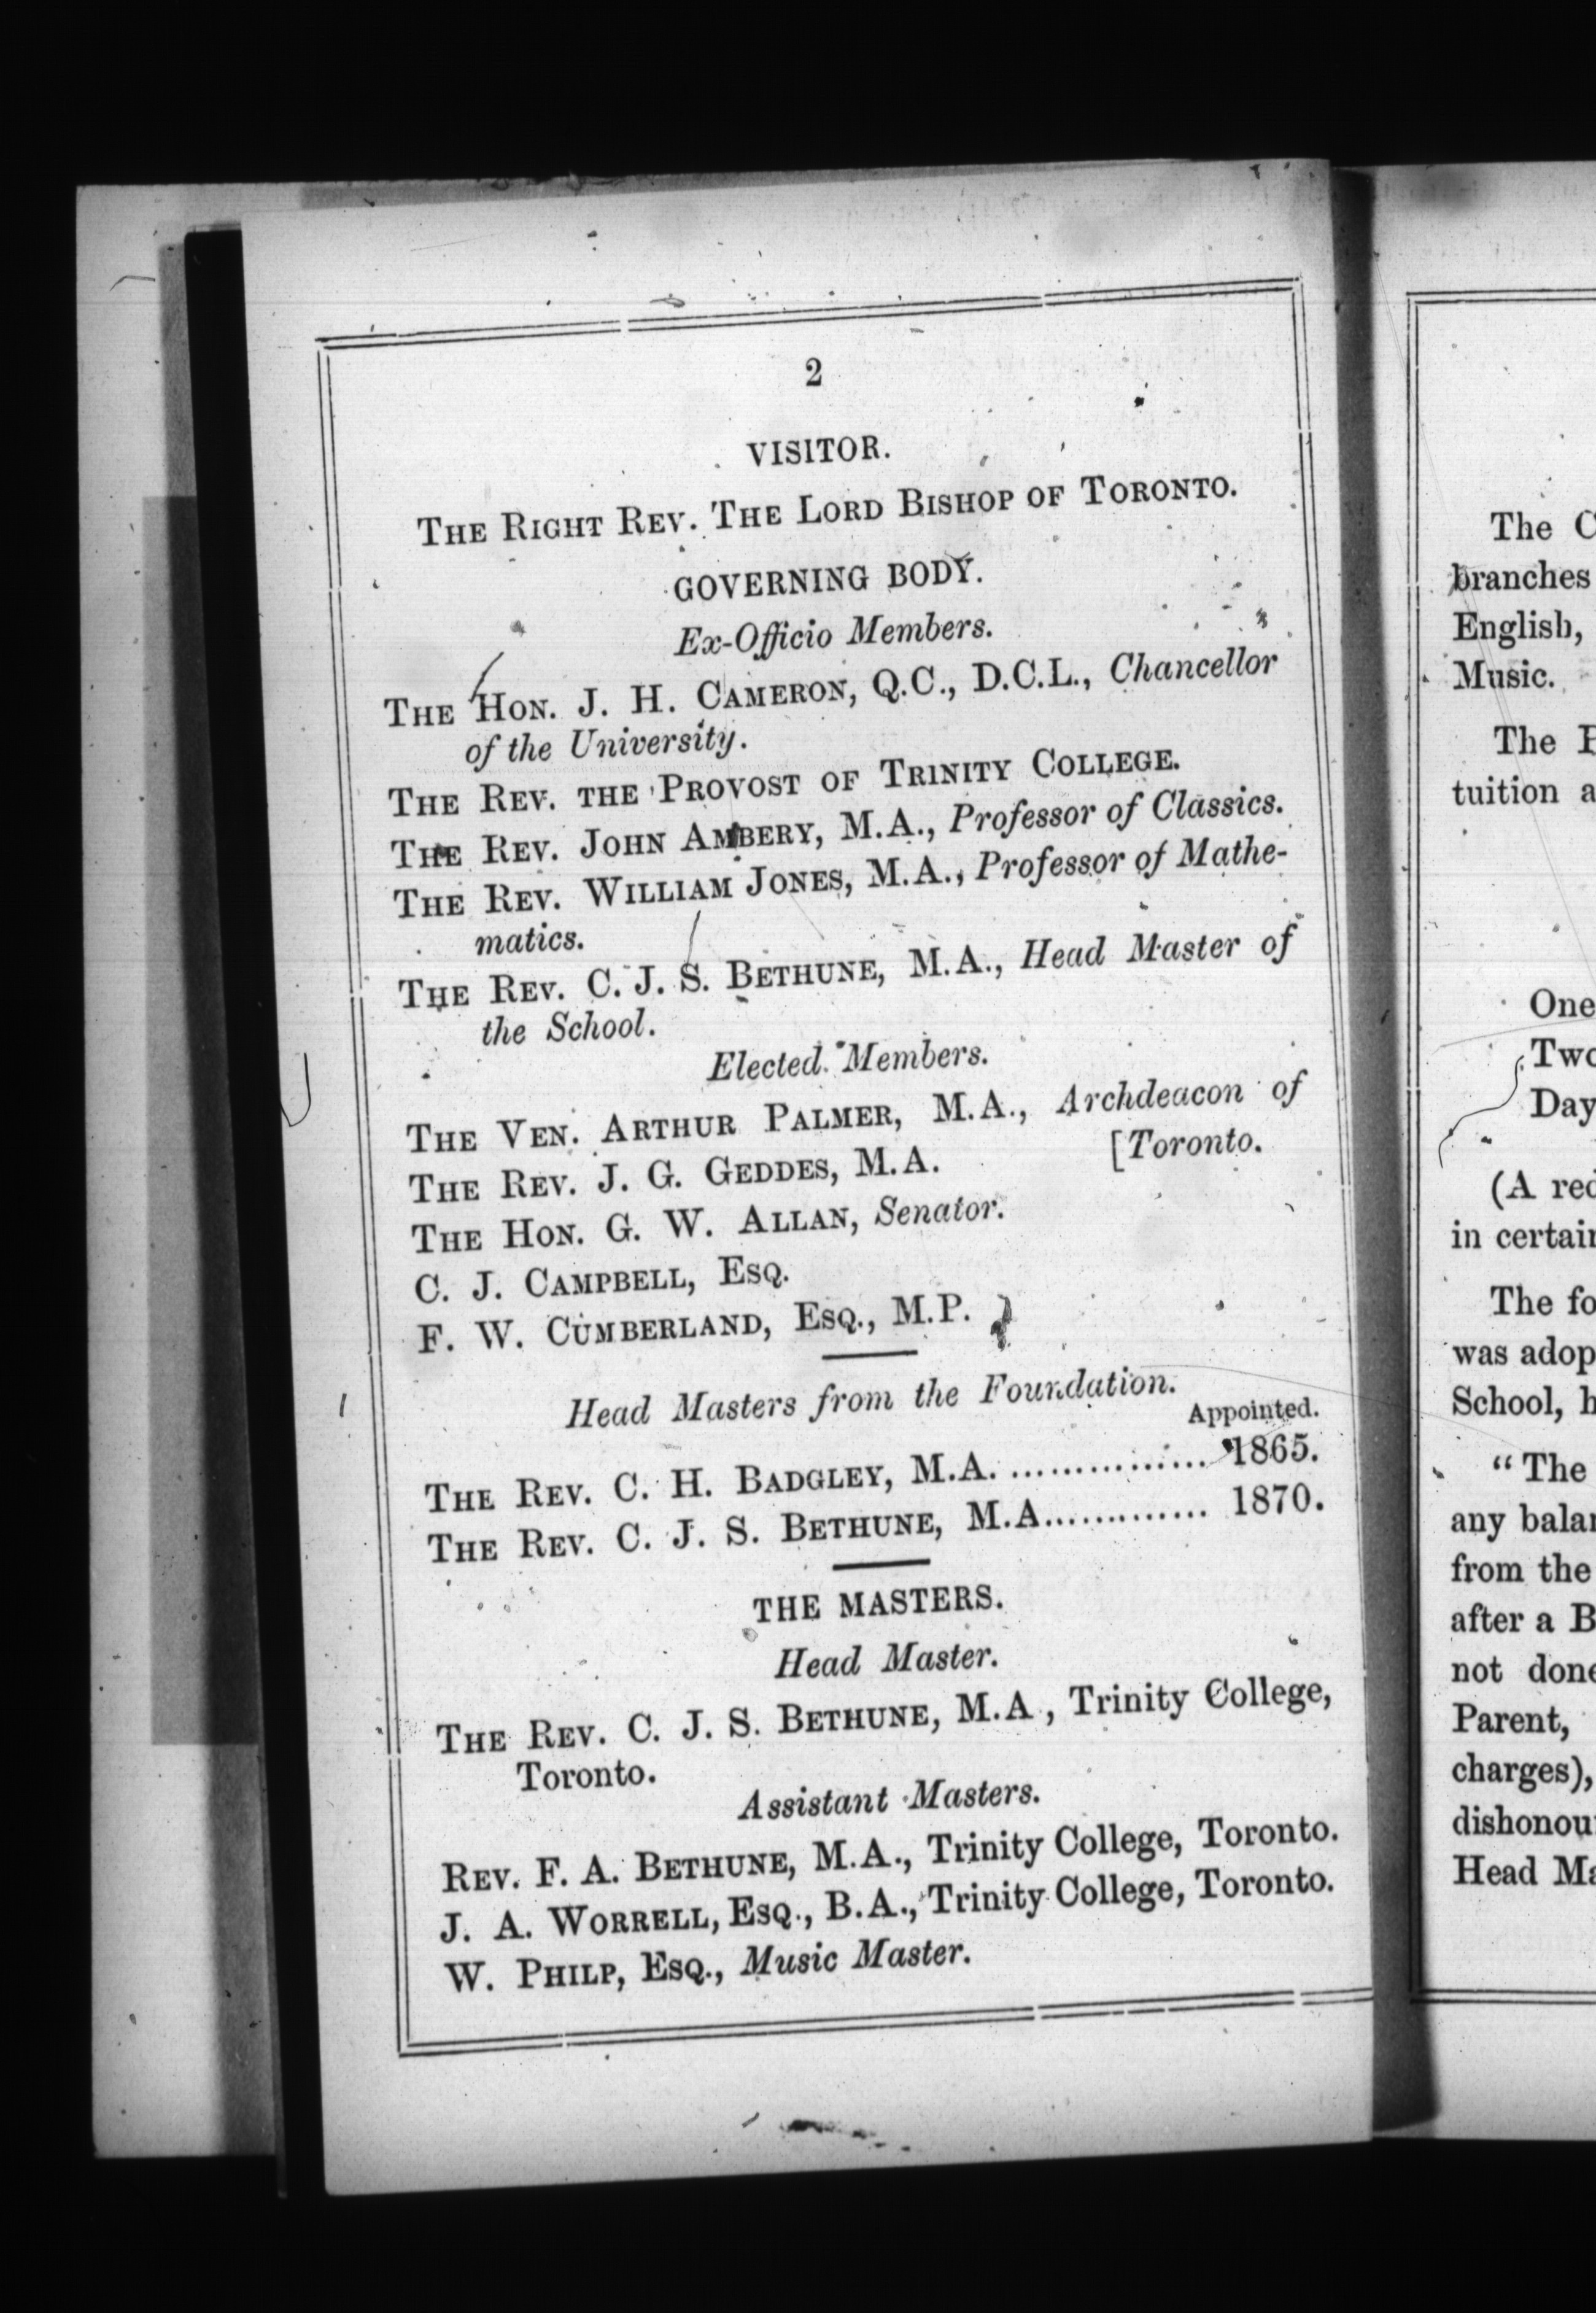 2
VISITOR.
THE RIGHT REV. THE LORD BISHOP OF TORONTO.
GOVERNING BODY.
Ex-Officio Members.
THE HON. J. H. CAMERON, Q.C., D.C.L., Chancellor
of the University.
THE REV. THE PROVOST OF TRINITY COLLEGE.
THE REV. JOHN AMBERY, M.A., Professor of Classics.
THE REV. WILLIAM JONES, M.A., Professor of Mathe-
matics.
THE REV. C. J. S. BETHUNE, M.A., Head Master of
the School.
Elected Members.
THE VEN. ARTHUR PALMER, M.A., Archdeacon of
[Toronto.
THE REV. J. G. GEDDES, M.A.
THE HON. G. W. ALLAN, Senator.
C. J. CAMPBELL, ESQ.
F. W. CUMBERLAND, ESQ., M.P.
Head Masters from the Foundation.
Appointed.
THE REV. C. H. BADGLEY, M.A. ................ 1865.
THE REV. C. J. S. BETHUNE, M.A............. 1870.
THE MASTERS.
Head Master.
THE REV. C. J. S. BETHUNE, M.A , Trinity College,
Toronto.
Assistant Masters.
REV. F. A. BETHUNE, M.A., Trinity College, Toronto.
J. A. WORRELL, ESQ., B.A., Trinity College, Toronto.
W. PHILP, ESQ., Music Master.
The
branches
English,
Music.
The
tuition
One
Two
Day
(A
in
The
was
School,
"The
any
from the
after a
not
Parent,
charges),
Head